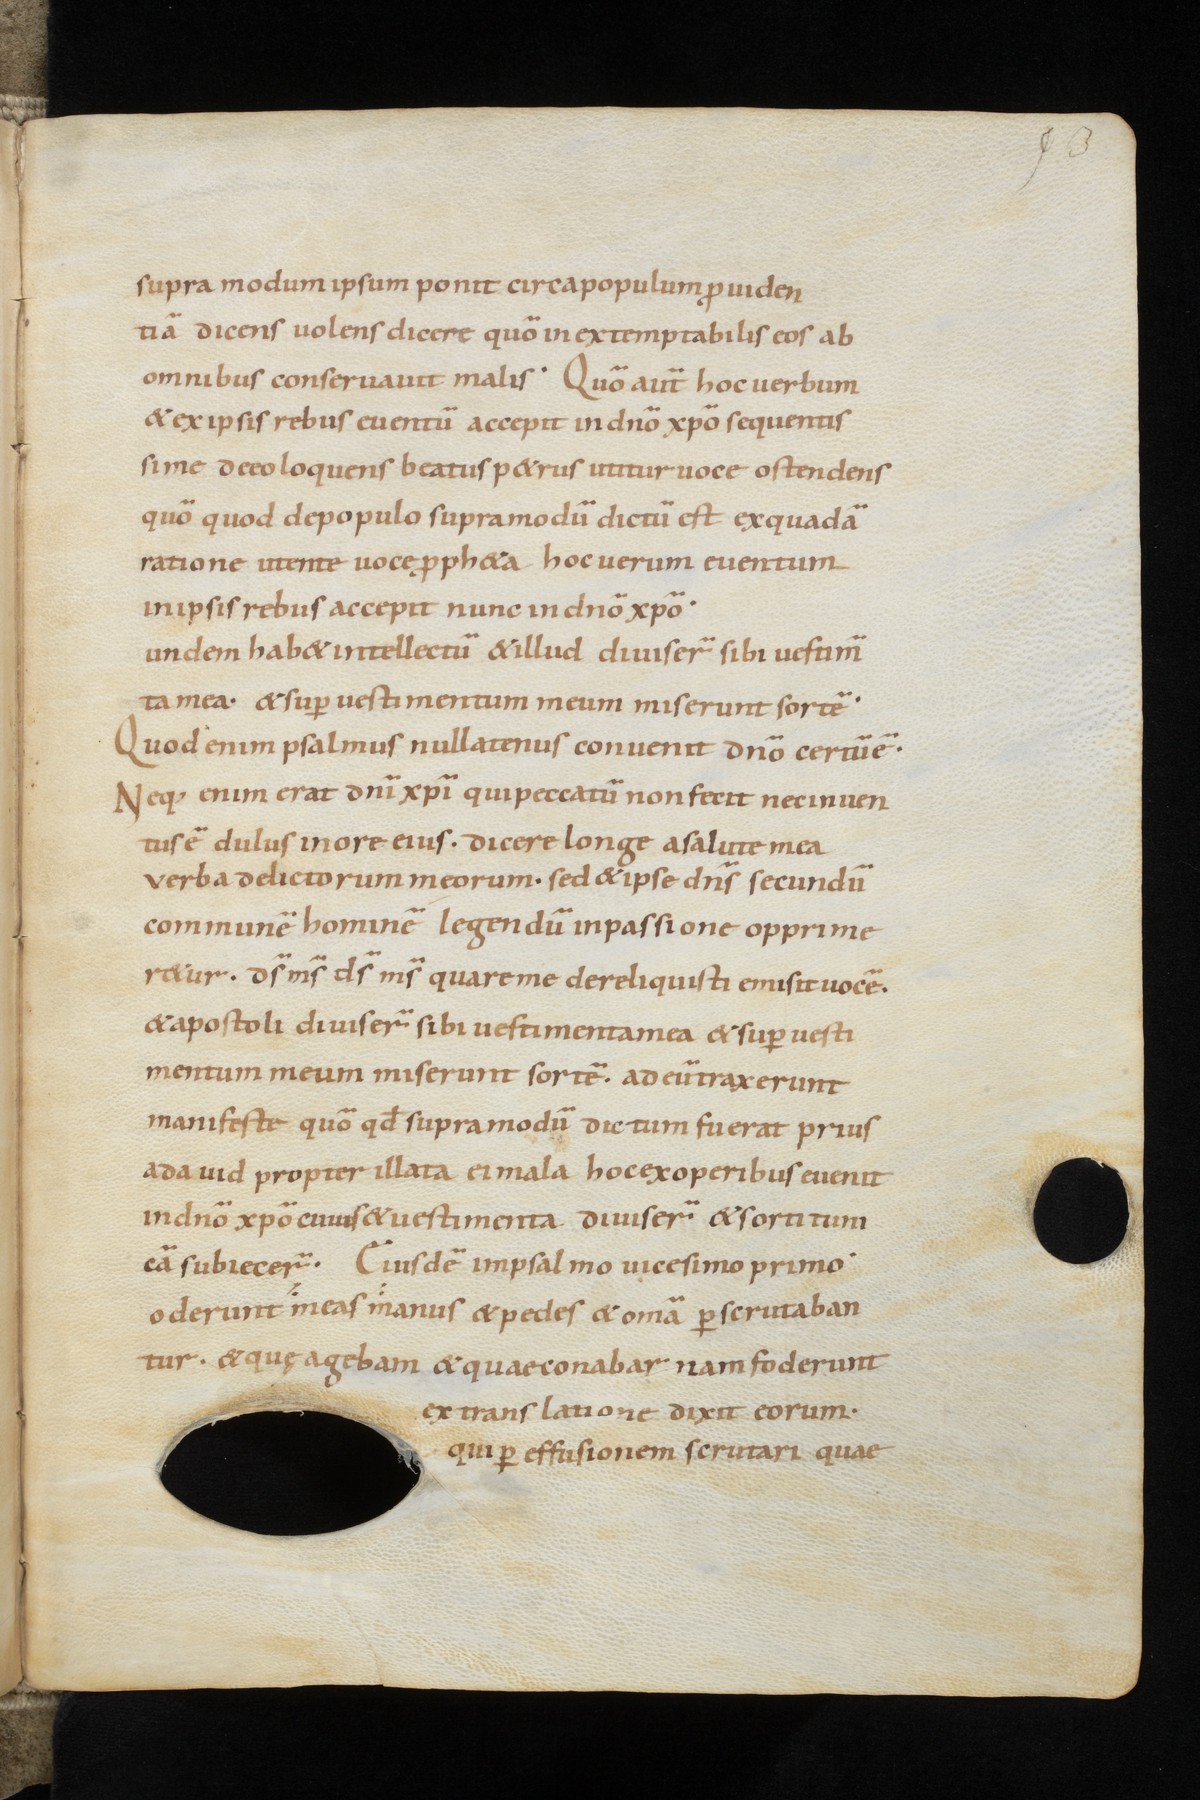 93
supra modum ipsum ponit circa populum ꝓuiden
tiā dicens uolens dicere quō inextemptabilis eos ab
omnibus conseruauit malis· Quō aut̄ hoc uerbum
& ex ipsis rebus euentū accepit in dnō xpō sequentis
sime deeo loquens beatus p&rus utitur uoce ostendens
quō quod depopulo supramodū dictū est exquadā
ratione utente uocę ꝓph&a hoc uerum euentum
in ipsis rebus accepit nunc in dnō xpō·
undem hab& intellectū & illud diuiser̄ sibi uestim̄
ta mea· & suꝑ uestimentum meum miserunt sortē·
Quod enim psalmus nullatenus conuenit dnō certūē·
Neq; enim erat dnī xpī qui peccatū non fecit nec inuen
tus ē dulus in ore eius· dicere longe a salute mea
verba delictorum meorum· sed & ipse dns̄ secundū
communē hominē legendū inpassione opprime
r&ur· ds̄ ms̄ ds̄ ms̄ quare me dereliquisti emisit uocē·
& apostoli diuiser̄ sibi uestimenta mea & suꝑ uesti
mentum meum miserunt sortē· ad eū traxerunt
manifeste quō qd̄ supra modū dictum fuerat prius
adauid propter illata ei mala hoc ex operibus euenit
in dnō xpō cuius & uestimenta diuiser̄ & sorti tum
eā subiecer̄· Eiusdē impsalmo uicesimo primo·
oderunt meas manus & pedes & omā ꝑscrutaban
tur· & quę agebam & quae conabar nam foderunt
ex translatione dixit eorum·
qui ꝑ effusionem scrutari quae